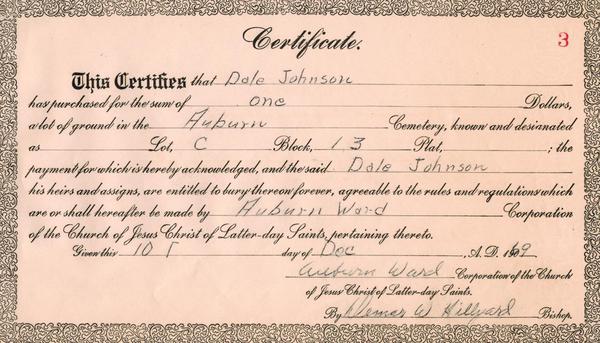 Certificate.
3
This Certifies that Dale Johnson
has purchased for the sum of one Dollars,
a lot of ground in the Auburn Cemetery, known and designated
as Lot, C Block, 13 Plat, ; the
payment for which is hereby acknowledged, and the said Dale Johnson
his heirs and assigns, are entitled to bury thereon forever, agreeable to the rules and regulations which
are or shall hereafter be made by Auburn Ward Corporation
of the Church of Jesus Christ of Latter-day Saints, pertaining thereto.
Given this 10 day of Dec , A. D. 1969
Auburn Ward Corporation of the Church
of Jesus Christ of Latter-day Saints.
By W Hillyard Bishop.